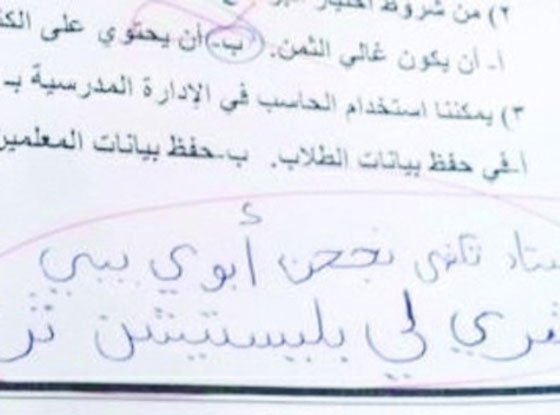 ٢) من شروط اختيار
أ- أن يكون غالي الثمن. ب- أن يحتوي على
٣) يمكننا استخدام الحاسب في الإدارة المدرسية بـ
أ-في حفظ بيانات الطلاب. ب-حفظ بيانات
تكفى نجحن أبوي يبي
لي بليستيشن